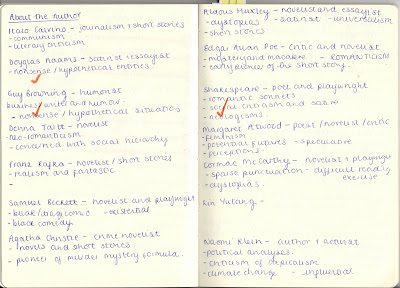 About the Author
Italo Calvino - journalism + short stories
- communism
- literary criticism
Douglas Adams - satirist + essayist
- nonsense / hypothetical entities
Guy Browning - humorist
business writer and humour.
- nonsense / hypothetical situations
Donna Tartt - novelist
neo-romanticism
- concerned with social hierarchy
Franz Kafka - novelist / short stories
- realism and fantastic
-
Samuel Beckett - novelist and playwright
- bleak / tragicomic - existential
- black comedy
Agatha Christie - crime novelist
- novels and short stories
- pioneer of murder mystery formula.
Aldous Huxley - novelist and essayist
- dystopias - satirist - universalism
- short stories
Edgar Allan Poe - critic and novelist
- mystery and macabre - ROMANTICISM
- early pioneer of the short story.
Shakespeare - poet and playwright
- romantic sonnets
- social criticism and satire
- neologisms
Margaret Atwood - poet / novelist / critic
- feminism
- potential futures - speculative
- perceptions
Cormac McCarthy - novelist + playwright
- sparse punctuation - difficult reading
exercise
- dystopias.
Lin Yutang -
Naomi Klein - author + activist
- political analyses.
- criticism of capitalism
- climate change - influential